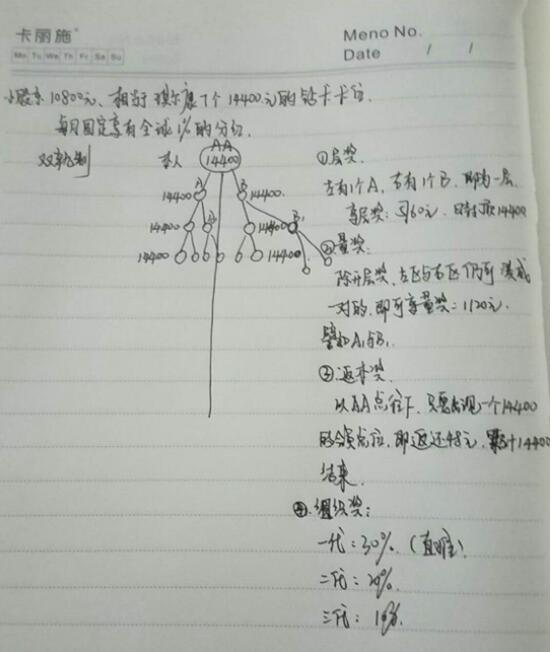 卡丽施
Meno No.
Mo Tu We Th Fr Sa Su
Date / /
小股东10800元、相当于 康7个14400元的钻卡卡位
每月固定享有全球1%的分红
双轨制
本人
AA
14400
A
B
14400
14400
14400
14400
14400
14400
①层奖
左有1个A,右有1个B,即为一层
享层奖: 60元,日封顶14400
②量奖:
除开层奖,左区与右区仍可凑成
一对的,即可享量奖:1120元.
譬如A1与B1
③返本奖
以AA点往下,只要出现一个14400
的会员点位,即返还48元,累计14400
结束.
④.组织奖:
一代:30%.(直推)
二代:20%.
三代:10%.